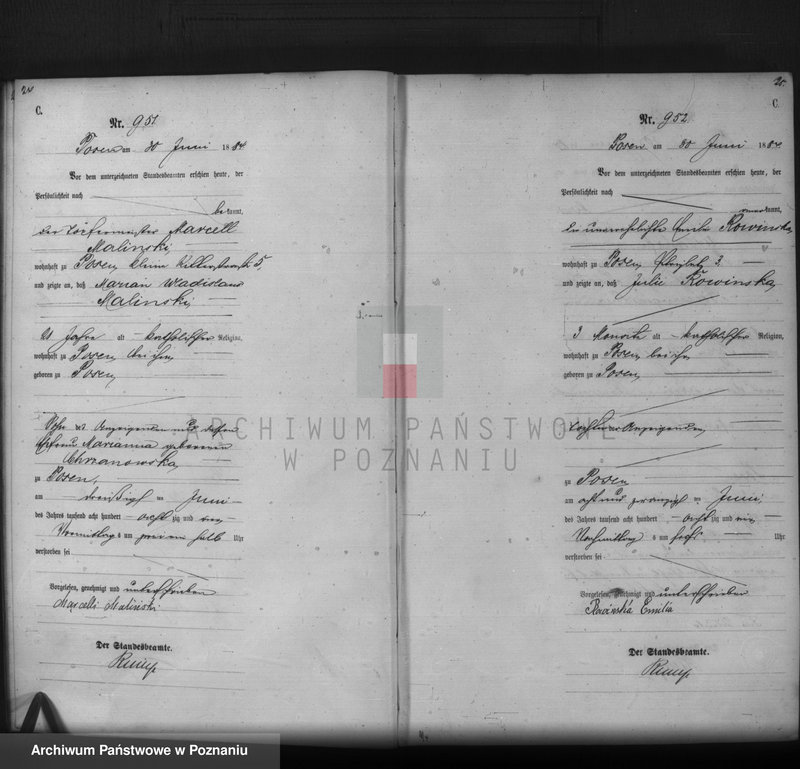 24
C.
Nr. 951.
Posen am 30 Juni 1884
Vor dem unterzeichneten Standesbeamten erschien heute, der
Persönlichkeit nach
bekannt,
der Töpfermeister Marcell
Malinski
wohnhaft zu Posen, kleine 5,
und zeigte an, daß Marian Wladislaus
Malinski,
Jahre alt katholischer Religion,
wohnhaft zu Posen bei ihm
geboren zu Posen,
Sohn des Anzeigenden und dessen
Ehefrau Marianna geborenen
Chrzanowska,
zu Posen,
am dreißigsten Juni
des Jahres tausend acht hundert achtzig und vier
Vormittags um halb Uhr
verstorben sei
Vorgelesen, genehmigt und unterschrieben
Marcelli Maliński
Der Standesbeamte.
25.
C.
Nr. 952.
Posen am 30 Juni 1884
Vor dem unterzeichneten Standesbeamten erschien heute, der
Persönlichkeit nach
kannt,
die unverehelichte Emilie Rowinska
wohnhaft zu Posen, 3
und zeigte an, daß Julie Rowinska,
3 Monate alt katholischer Religion,
wohnhaft zu Posen bei ihr
geboren zu Posen,
Tochter der Anzeigenden,
zu Posen
am acht und zwanzigsten Juni
des Jahres tausend acht hundert achtzig und vier
Nachmittags um sechs Uhr
verstorben sei
Vorgelesen, genehmigt und unterschrieben
Emilia
Der Standesbeamte.
ARCHIWUM PAŃSTWOWE
W POZNANIU
Archiwum Państwowe w Poznaniu